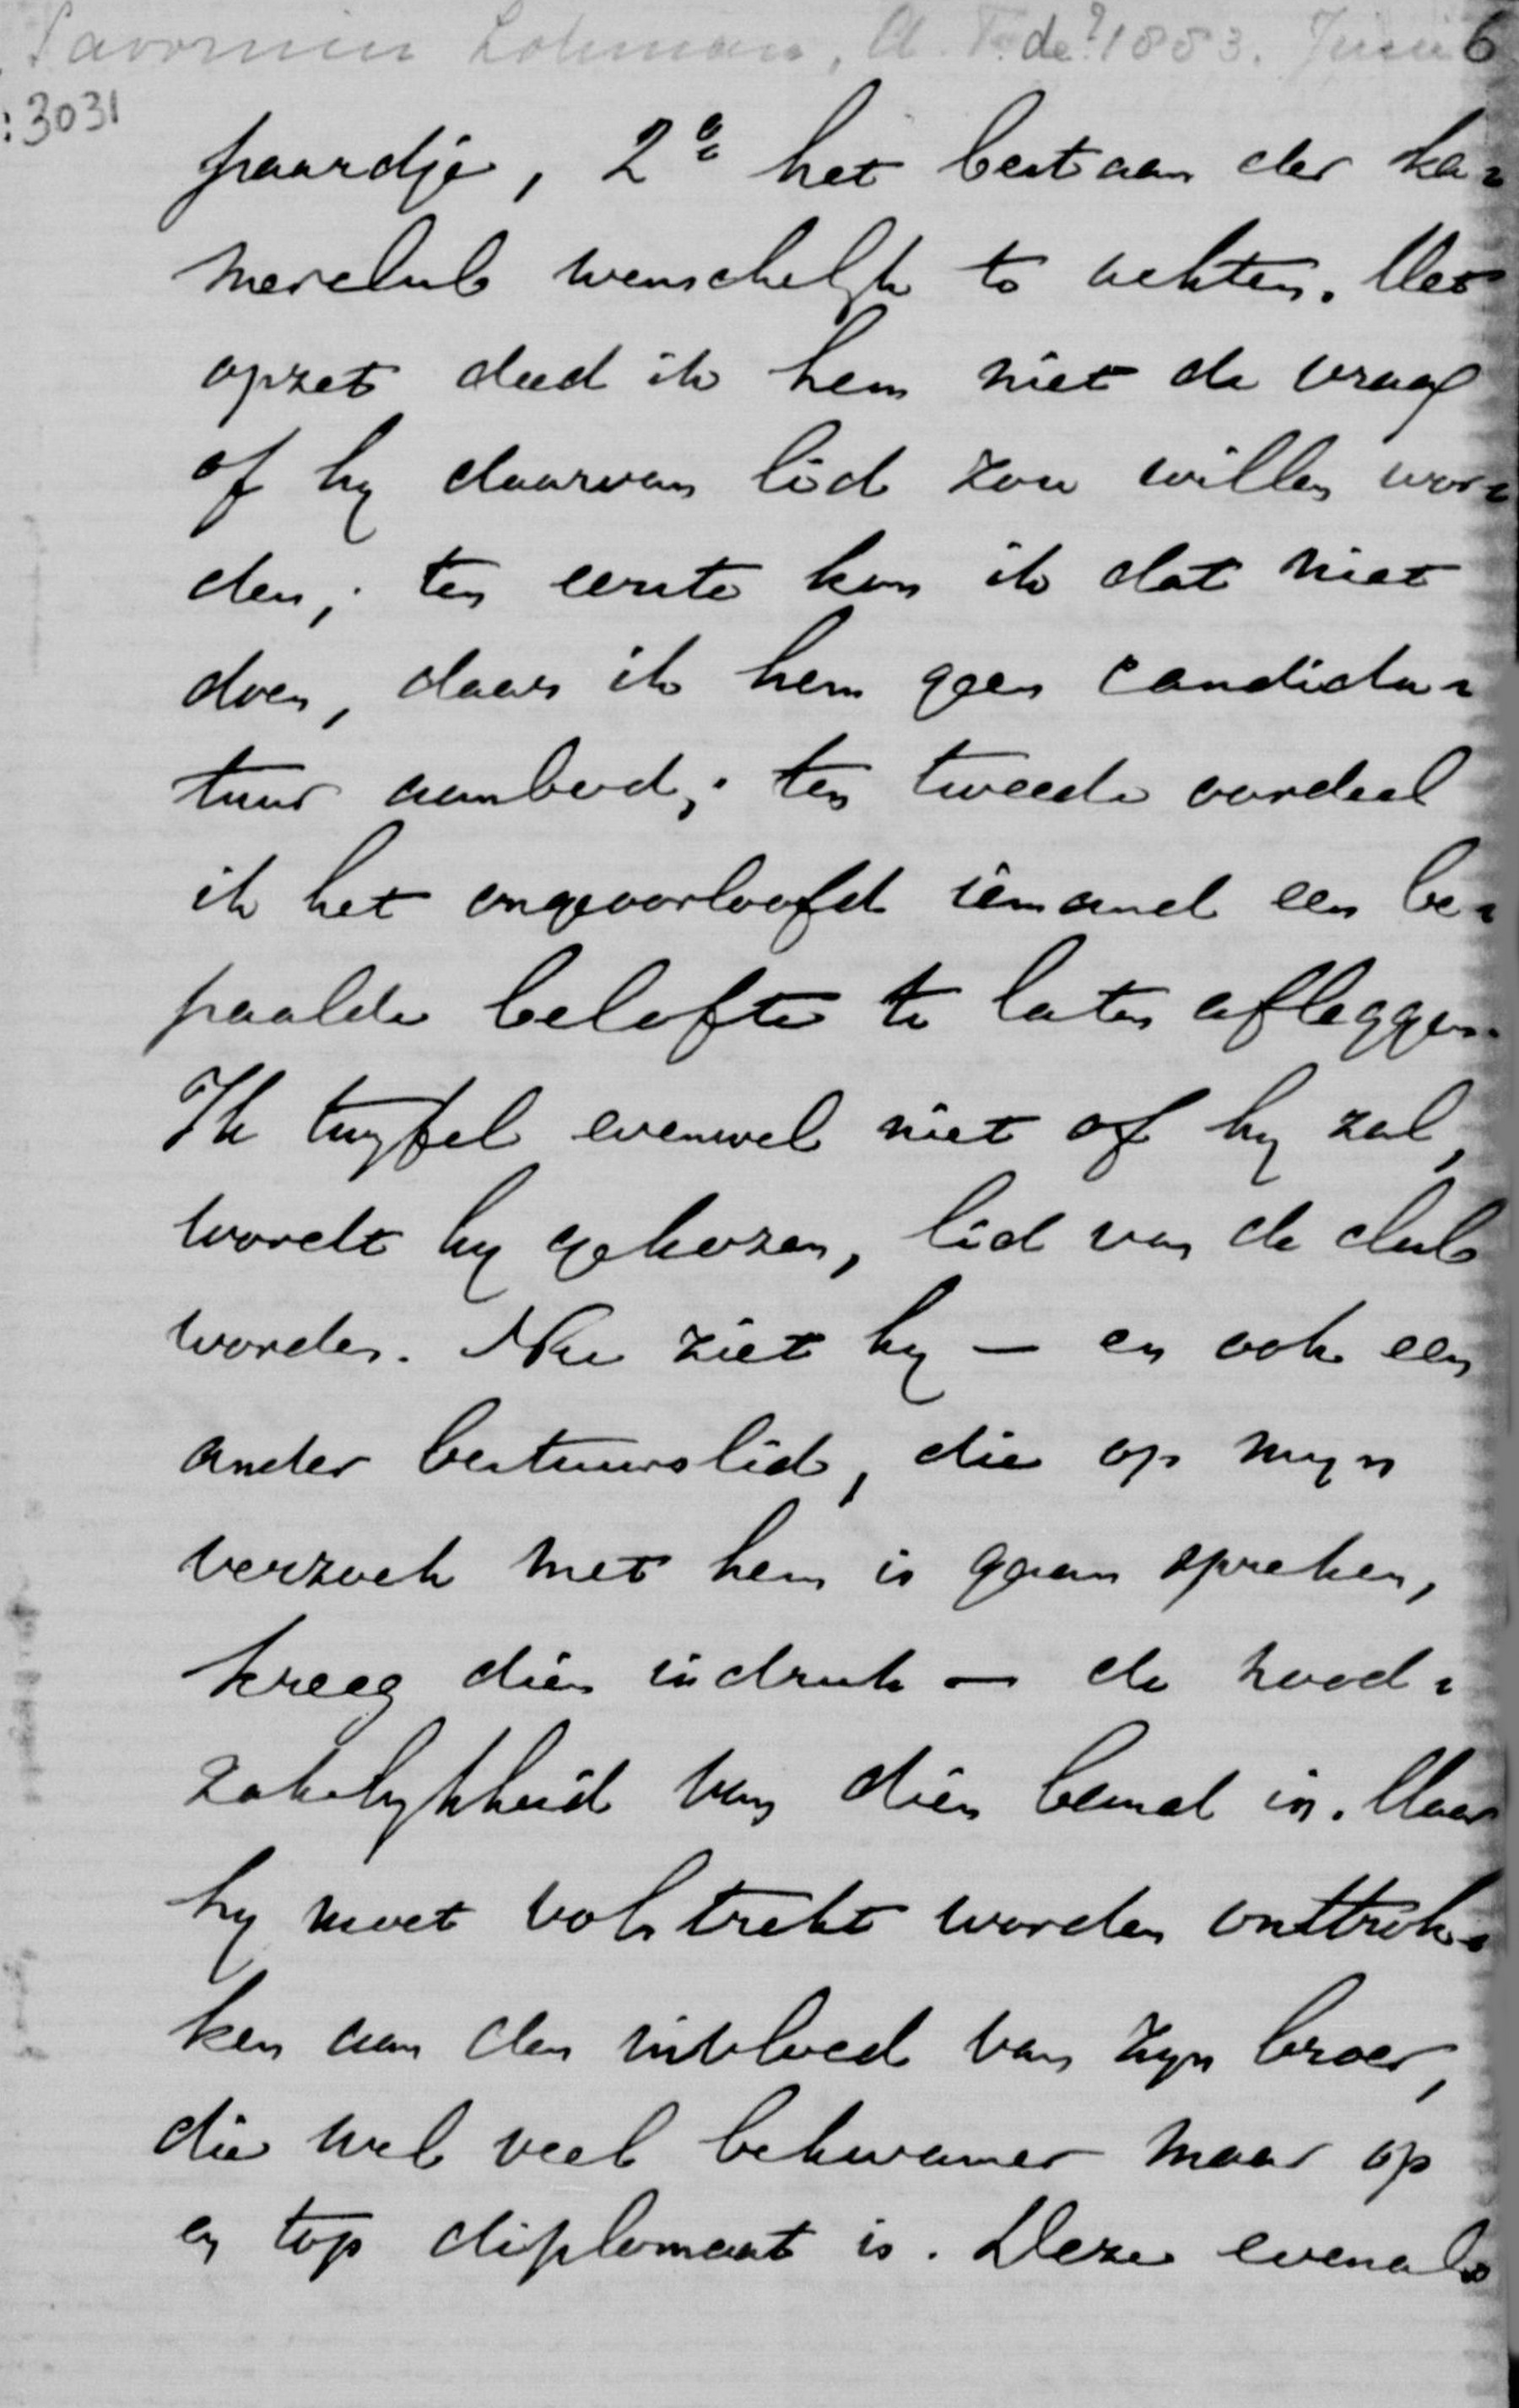 Savornin Lohman, A. F. de? 1883. Juni 6
:3031
paardje, 2° het bestaan der ka-
merclub wenschelyk te achten. Met
opzet deed ik hem niet de vraag
of hy daarvan lid zou willen wor-
den; ten eerste kon ik dat niet
doen, daar ik hem geen candida-
tuur aanbod; ten tweede oordeel
ik het ongeoorloofd iemand een be-
paalde belofte te laten afleggen.
Ik twyfel evenwel niet of hy zal,
wordt hy gekozen, lid van de club
worden. Nu ziet hy — en ook een
ander bestuurslid, die op myn
verzoek met hem is gaan spreken,
kreeg dien indruk — de nood-
zakelykheid van dien band in. Maar
hy moet volstrekt worden onttrok-
ken aan den invloed van zyn broer,
die wel veel bekwamer maar op
en top diplomaat is. Deze evenals